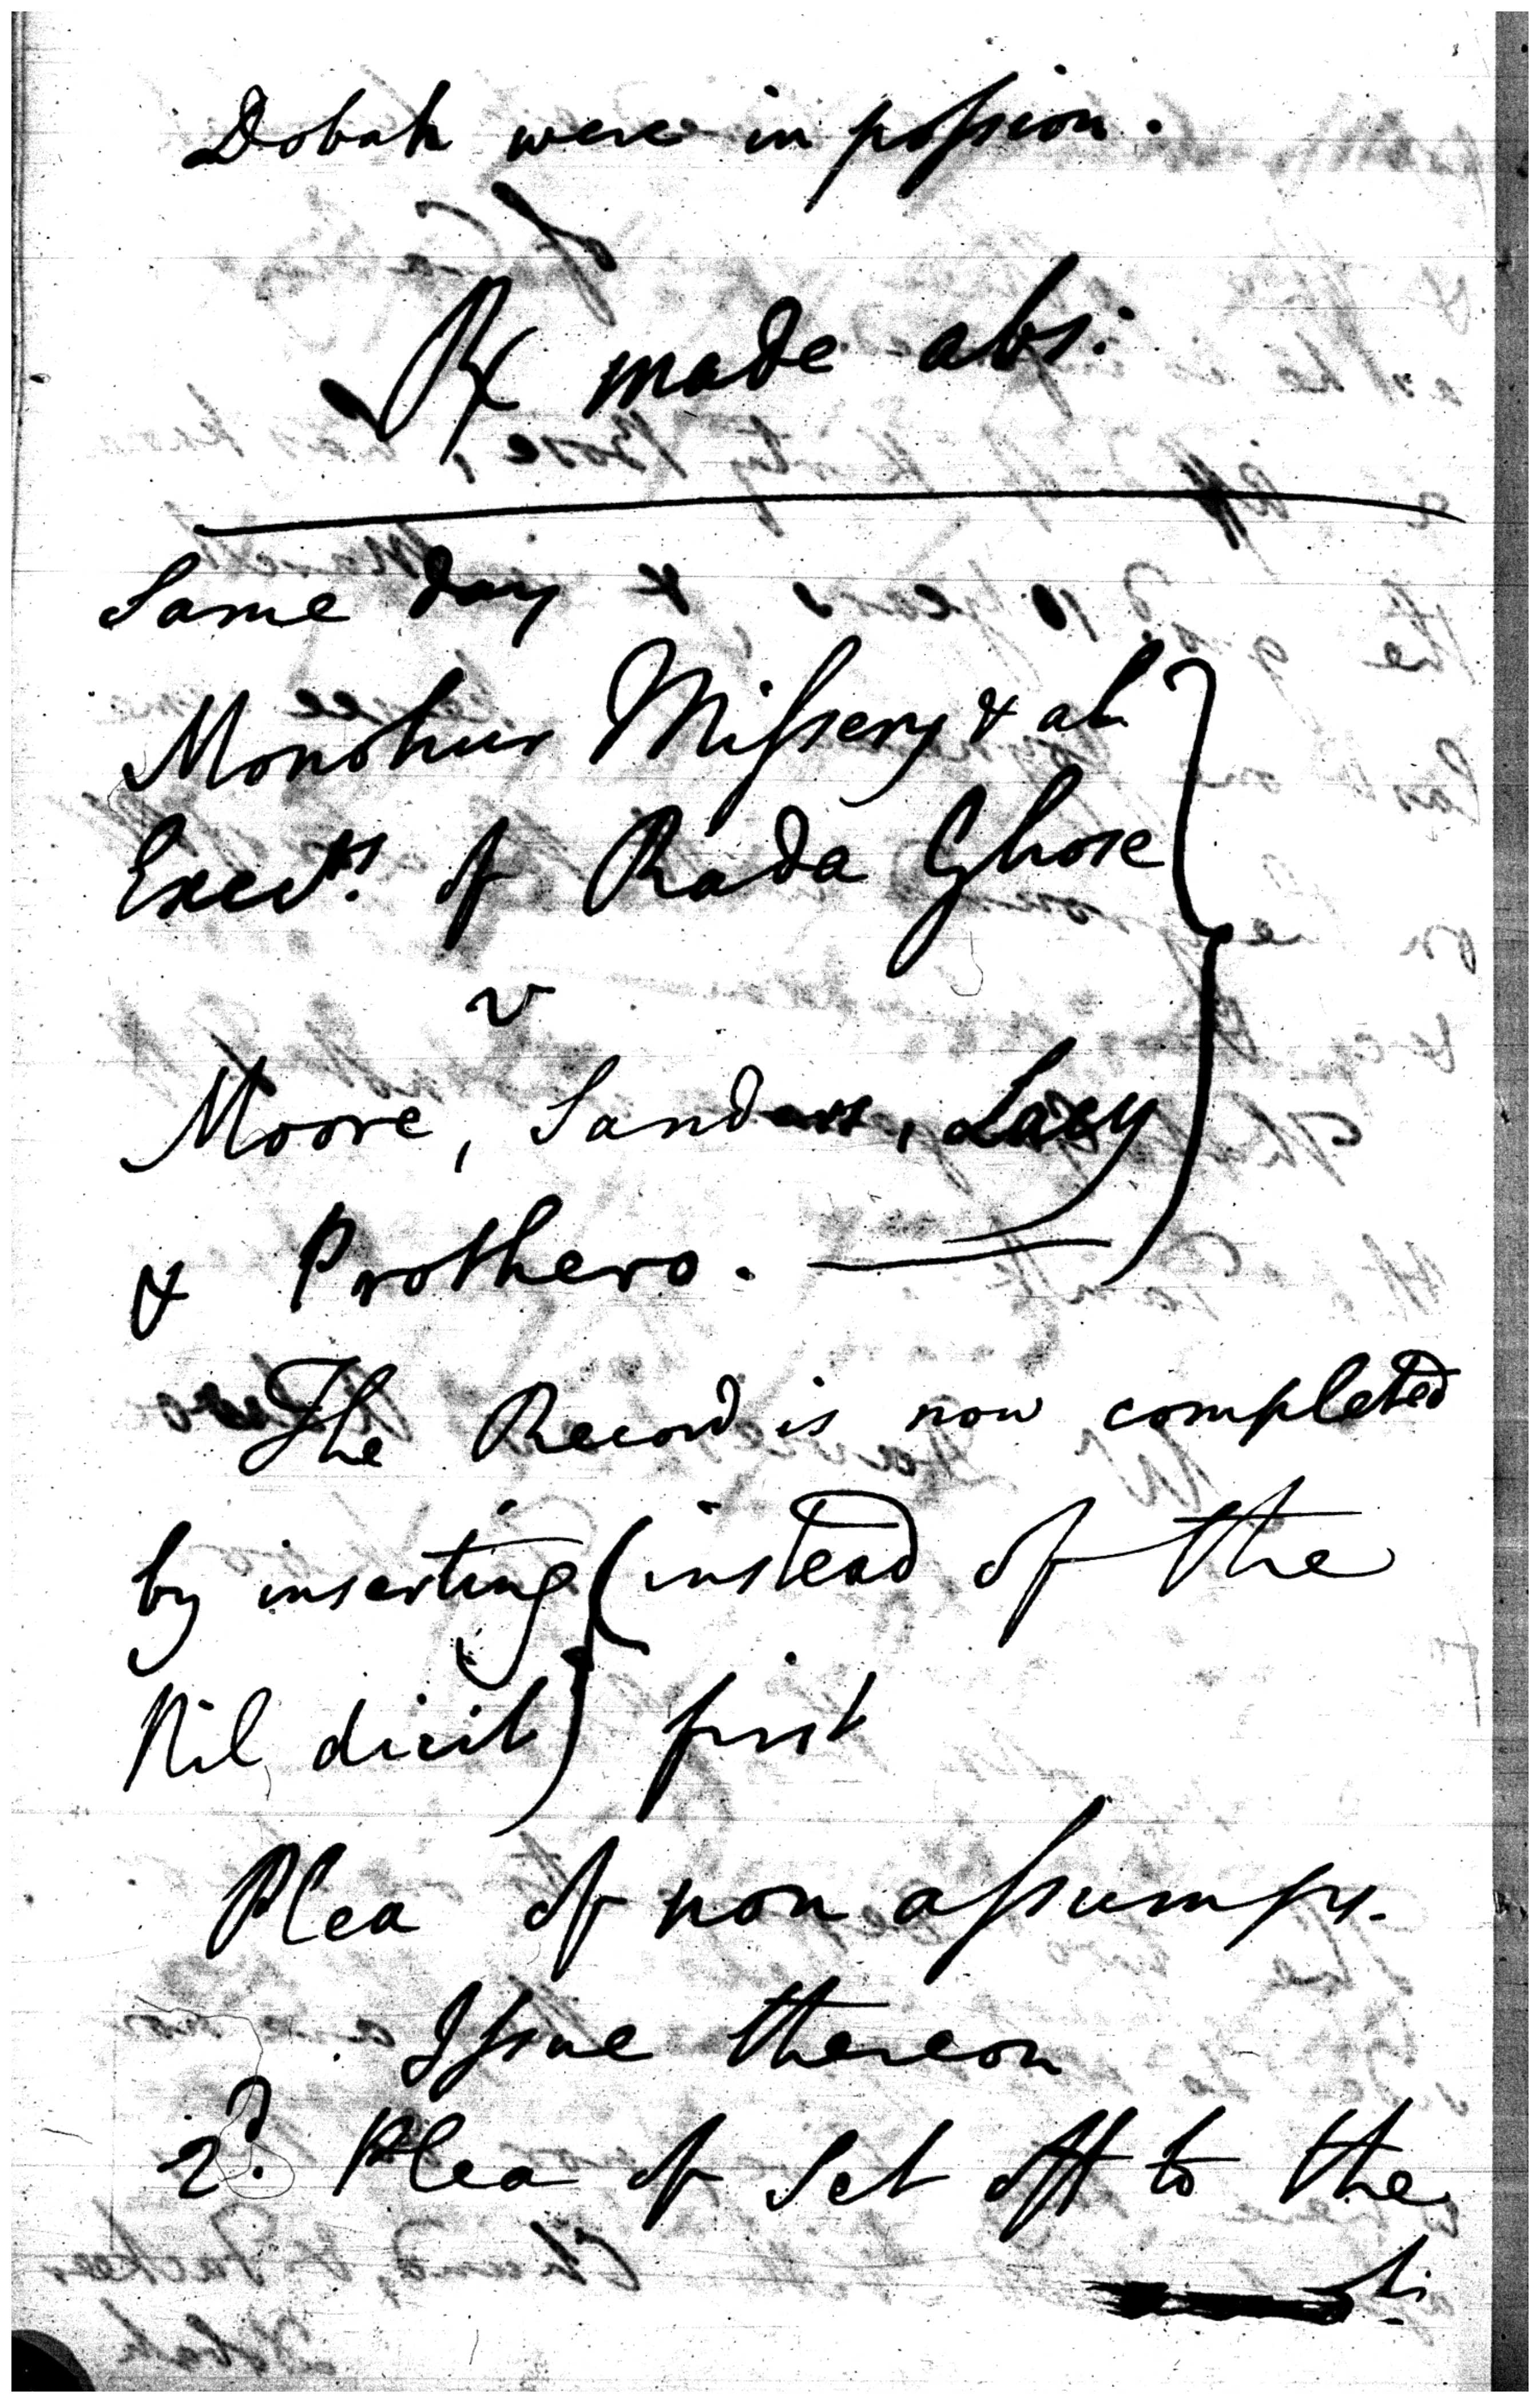 Dobah were in possion.
Rx made abs:
Same day
Monohur Missery & al
Execrs. of Rada Ghose
v
Moore, Sanders, Lacy
& Prothero.
The Record is now completed
by inserting (instead of the
Nil dicit) first
Plea of non assumps.
Issue thereon
2d. Plea of Set off to the